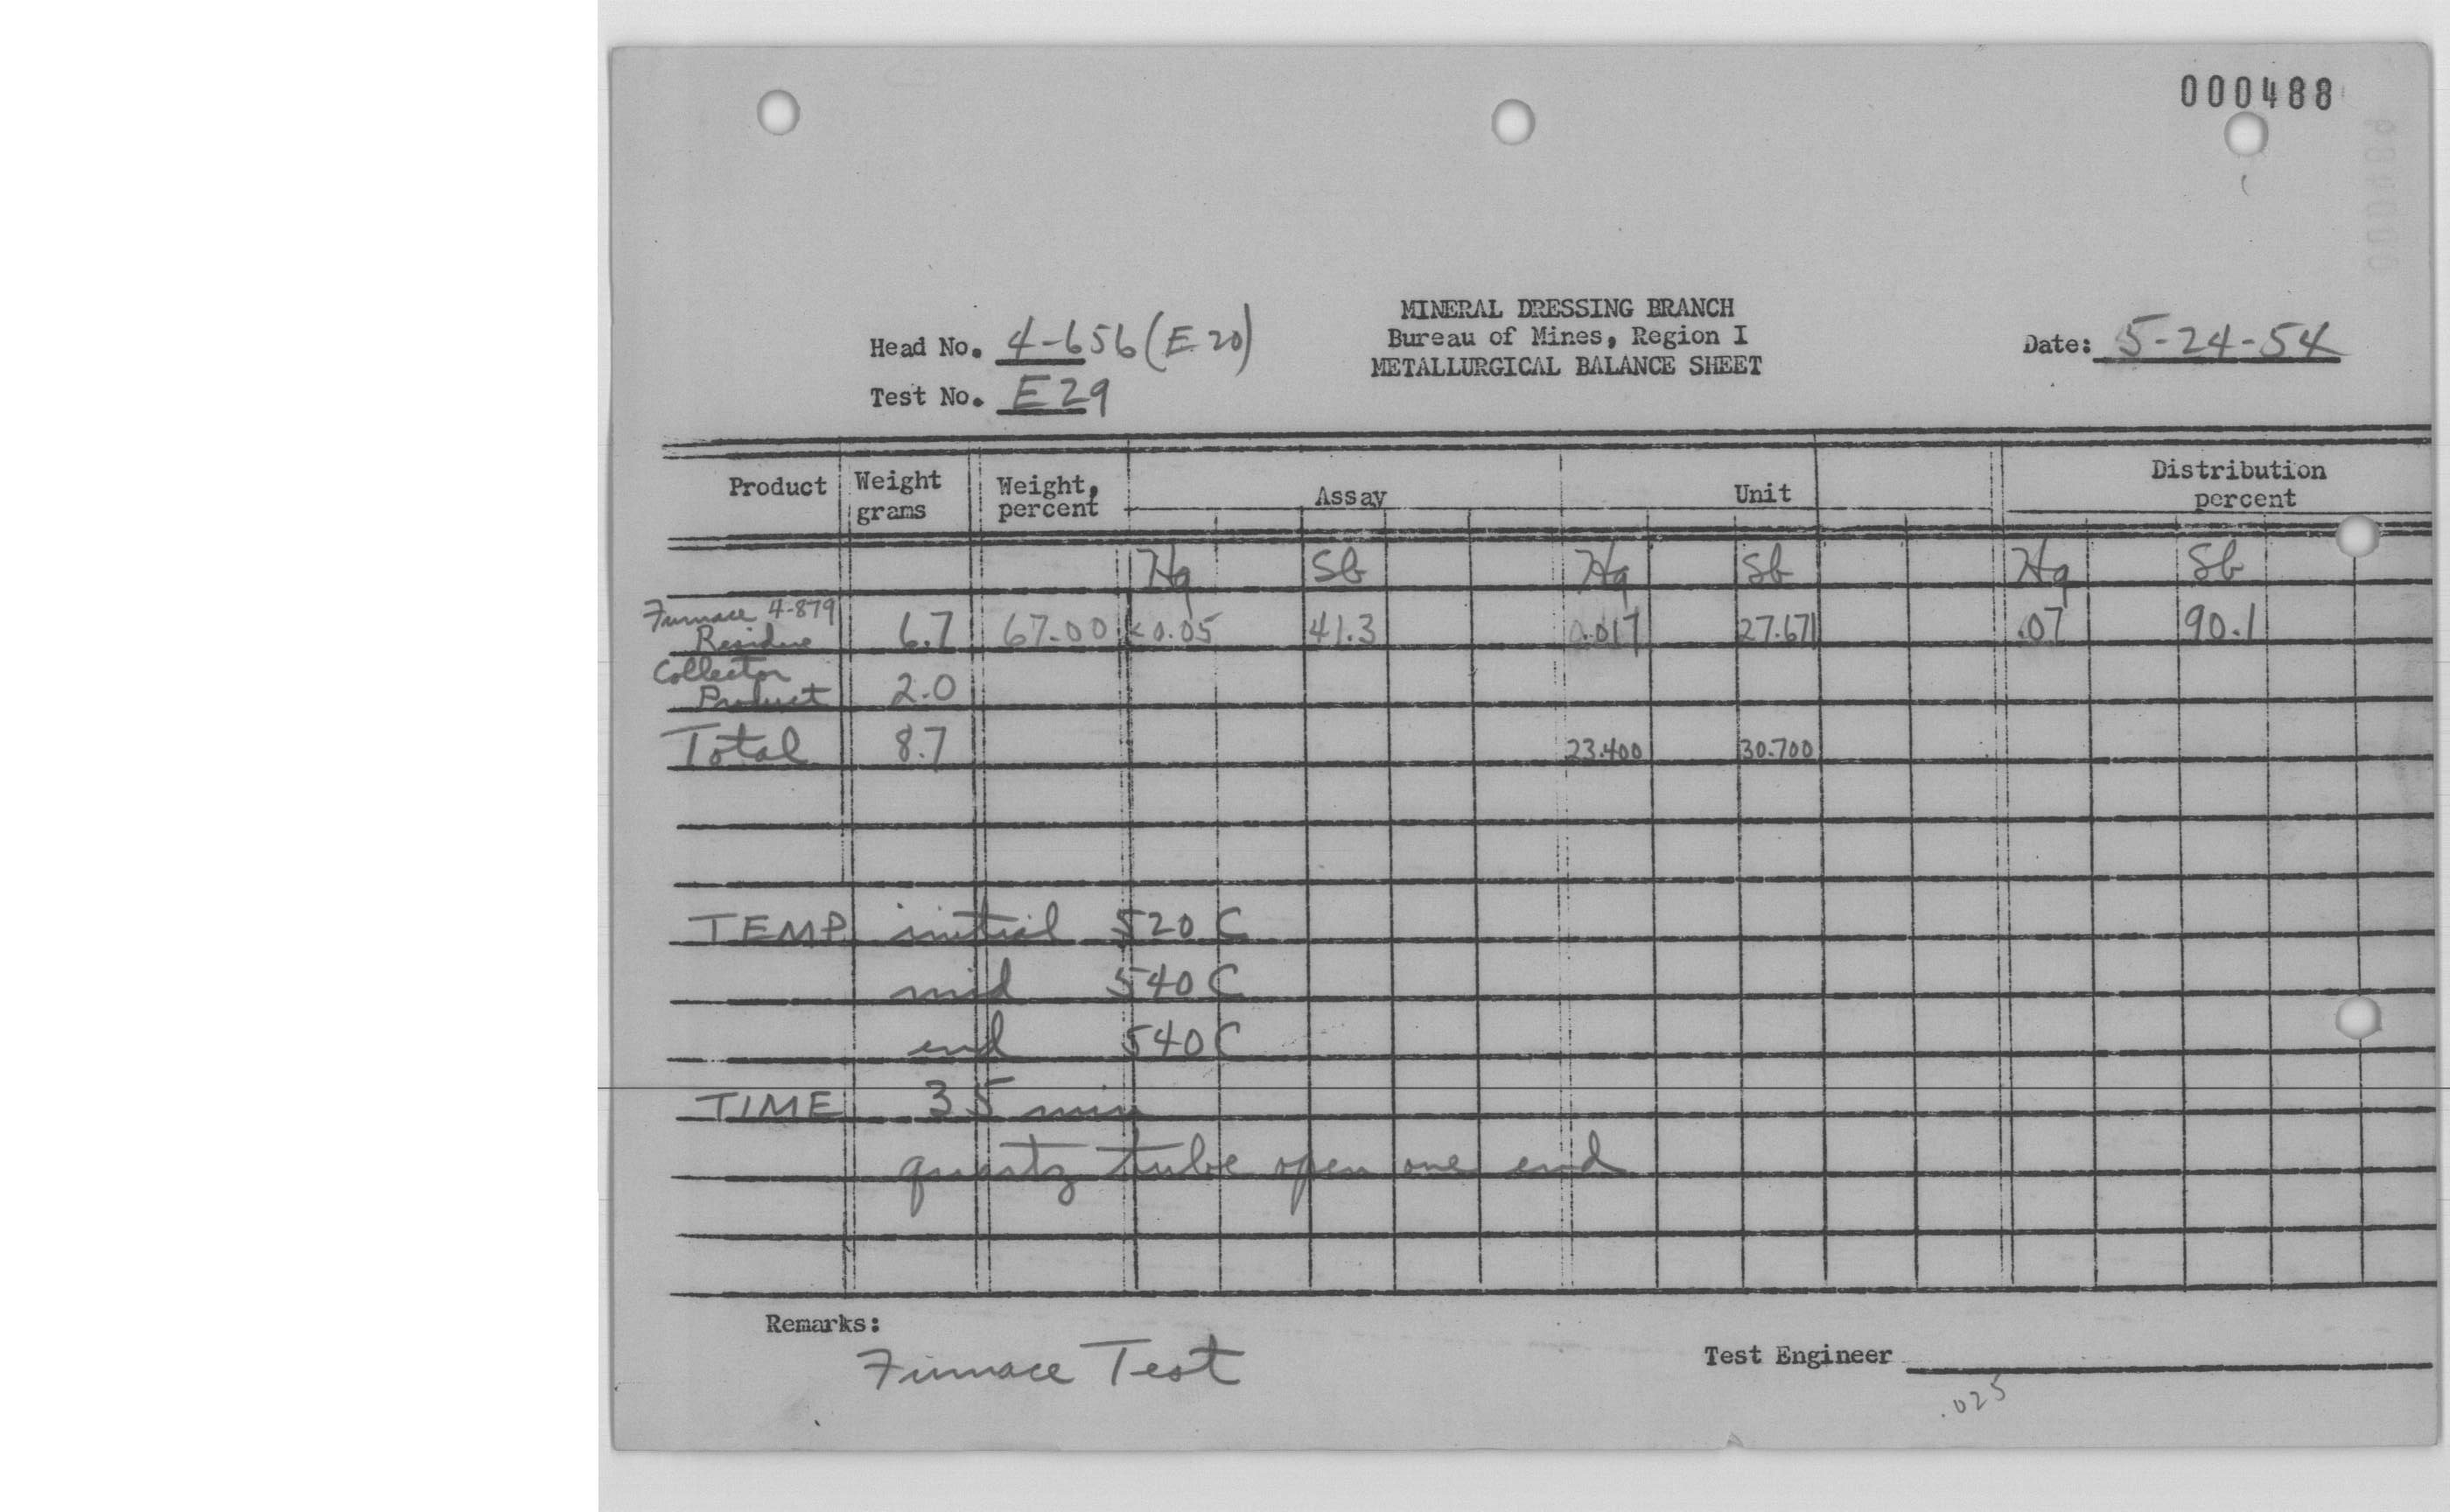 000488
MINERAL DRESSING BRANCH
Head No. 4-656 (E20) Bureau of Mines, Region I Date: 5-24-54
METALLURGICAL BALANCE SHEET
Test No. E29
Product Weight grams Weight, percent Assay Unit Distribution percent
Hg Sb Hg Sb Hg Sb
Furnace 4-879
Residue 6.7 67.00 <0.05 41.3 0.017 27.671 .07 90.1
Collector
Product 2.0
Total 8.7 23.400 30.700
TEMP initial 520 C
mid 540 C
end 540 C
TIME 35 min
quartz tube open one end
Remarks:
Furnace Test
Test Engineer
.025